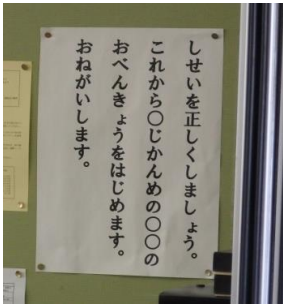 しせいを正しくしましょう。
これから〇じかんめの〇〇の
おべんきょうをはじめます。
おねがいします。